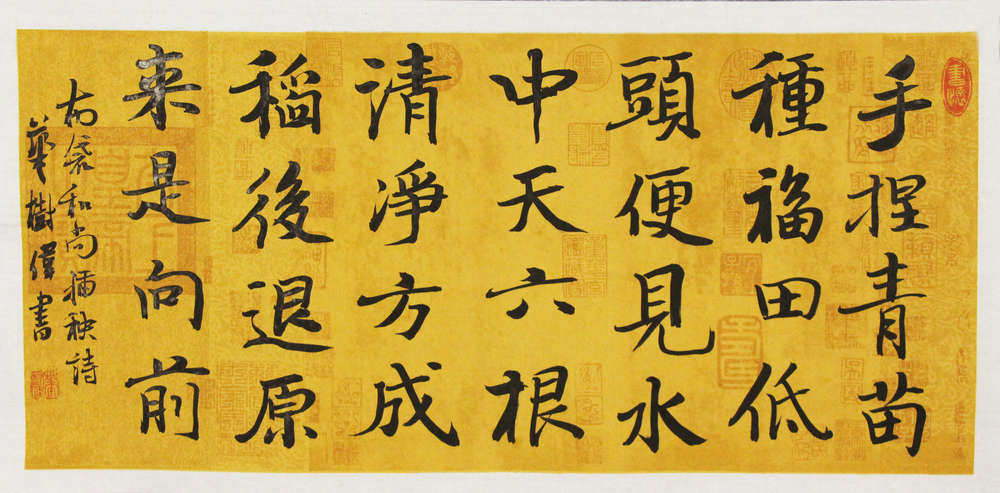 手捏青苗
種福田低
頭便見水
中天六根
清淨方成
稲後退原
来是向前
布袋和尚插秧詩
華樹偉書